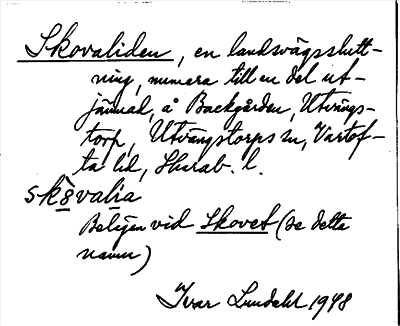 Skovaliden, en landsvägsslutt-
ning, numera till en del ut-
jämnad, å Backgården, Utvängs-
torp, Utvängstorps sn, Vartof-
ta hd, Skarab. l.
skȯ̀valia
Belägen vid Skovet (se detta
namn)
Ivar Lundahl 1948